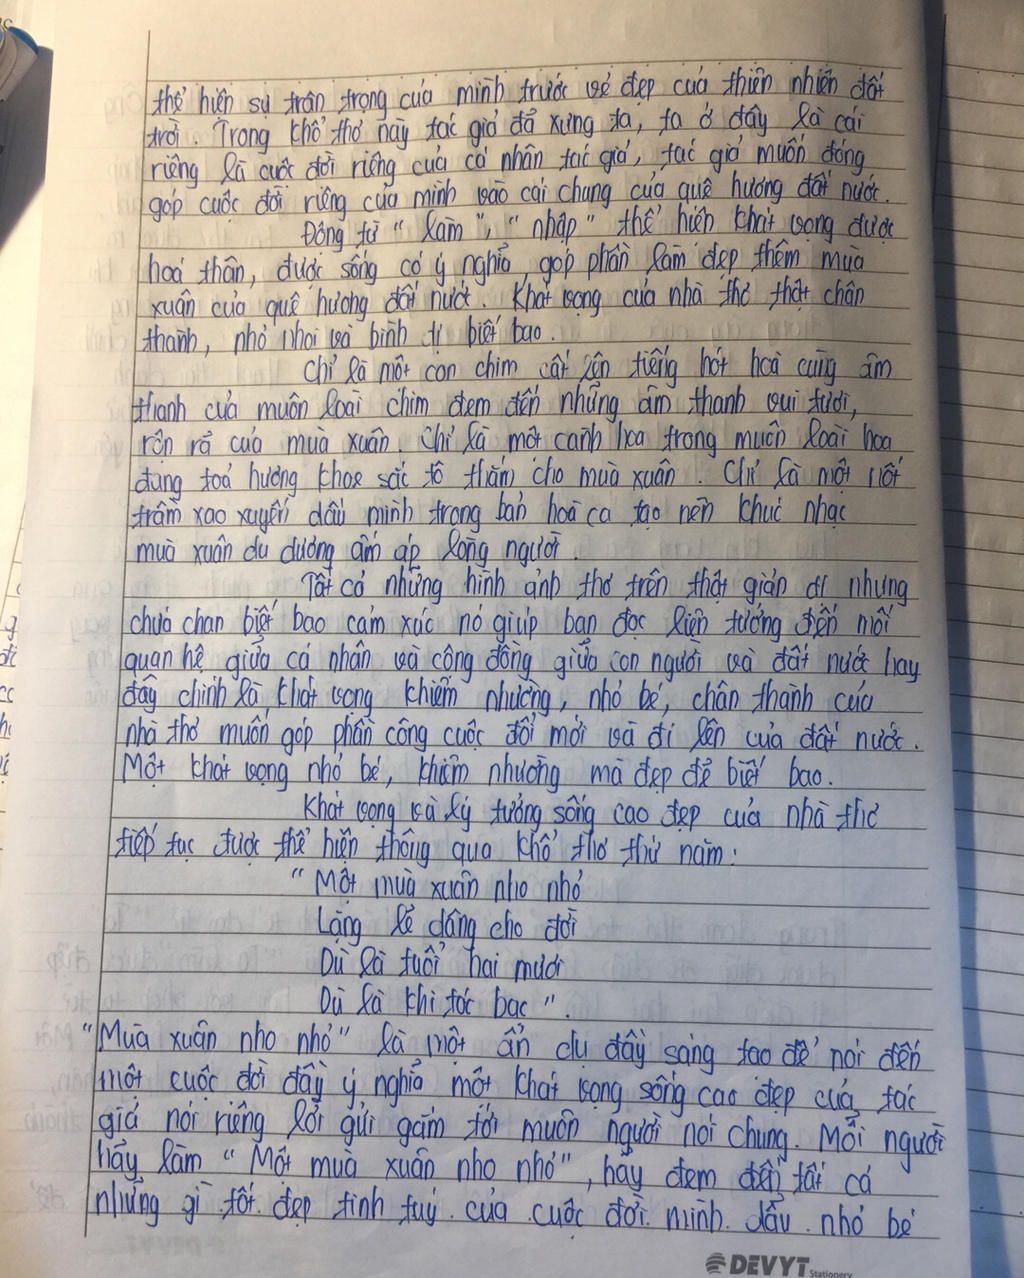 thể hiện sự trân trọng của mình trước vẻ đẹp của thiên nhiên đất
trời. Trong khổ thơ này tác giả đã xưng ta, ta ở đây là cái
riêng là cuộc đời riêng của cá nhân tác giả, tác giả muốn đóng
góp cuộc đời riêng của mình vào cái chung của quê hương đất nước.
Động từ "làm", "nhập" thể hiện khát vọng được
hoá thân, được sống có ý nghĩa, góp phần làm đẹp thêm mùa
xuân của quê hương đất nước. Khát vọng của nhà thơ thật chân
thành, nhỏ nhoi và bình dị biết bao.
Chỉ là một con chim cất lên tiếng hót hoà cùng âm
thanh của muôn loài chim đem đến những âm thanh vui tươi,
rộn rã của mùa xuân. Chỉ là một cành hoa trong muôn loài hoa
đang toả hương khoe sắc tô thắm cho mùa xuân. Chỉ là một nốt
trầm xao xuyến dấu mình trong bản hoà ca tạo nên khúc nhạc
mùa xuân du dương ấm áp lòng người.
Tất cả những hình ảnh thơ trên thật giản dị nhưng
chứa chan biết bao cảm xúc nó giúp bạn đọc liên tưởng đến mối
quan hệ giữa cá nhân và cộng đồng giữa con người và đất nước hay
đây chính là khát vọng khiêm nhường, nhỏ bé, chân thành của
nhà thơ muốn góp phần công cuộc đổi mới và đi lên của đất nước.
Một khát vọng nhỏ bé, khiêm nhường mà đẹp đẽ biết bao.
Khát vọng và lý tưởng sống cao đẹp của nhà thơ
tiếp tục được thể hiện thông qua khổ thơ thứ năm:
"Một mùa xuân nho nhỏ
Lặng lẽ dâng cho đời
Dù là tuổi hai mươi
Dù là khi tóc bạc".
"Mùa xuân nho nhỏ" là một ẩn dụ đầy sáng tạo để nói đến
một cuộc đời đầy ý nghĩa một khát vọng sống cao đẹp của tác
giả nói riêng lời gửi gắm tới muôn người nói chung. Mỗi người
hãy làm "Một mùa xuân nho nhỏ", hãy đem đến tất cả
những gì tốt đẹp tinh tuý của cuộc đời mình dẫu nhỏ bé
DEVYT Stationery